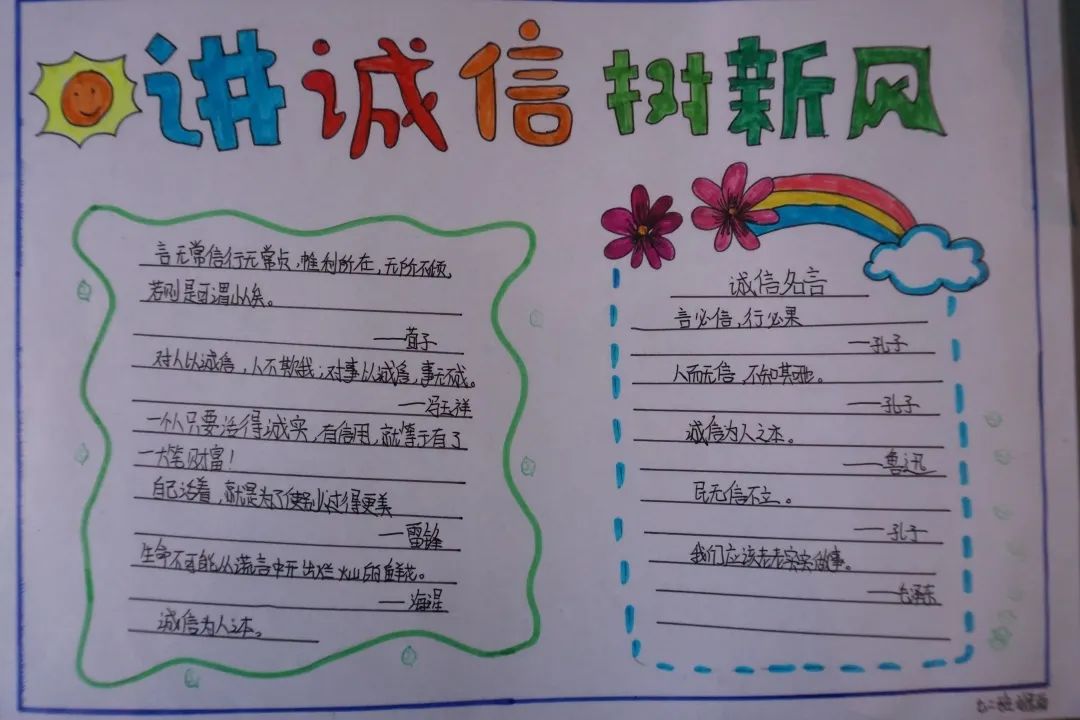 讲诚信树新风
言无常信行无常贞,惟利所在,无所不倾,
若则是可谓小人矣。
——荀子
对人以诚信,人不欺我;对事以诚信,事无不成。
——冯玉祥
一个人只要活得诚实,有信用,就等于有了
一大笔财富!
自己活着,就是为了使别人过得更美
——雷锋
生命不可能从谎言中开出烂火山的鲜花。
——海涅
诚信为人之本。
诚信名言
言必信,行必果
——孔子
人而无信,不知其可也。
——孔子
诚信为人之本。
——鲁迅
民无信不立。
——孔子
我们应该老老实实做事。
——毛泽东